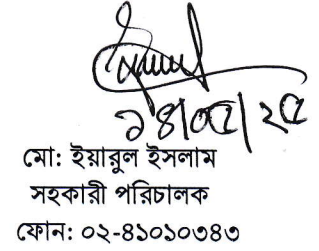 ১৪/০৫/২৫
মো: ইয়ারুল ইসলাম
সহকারী পরিচালক
ফোন: ০২-৪১০১০৩৪৩